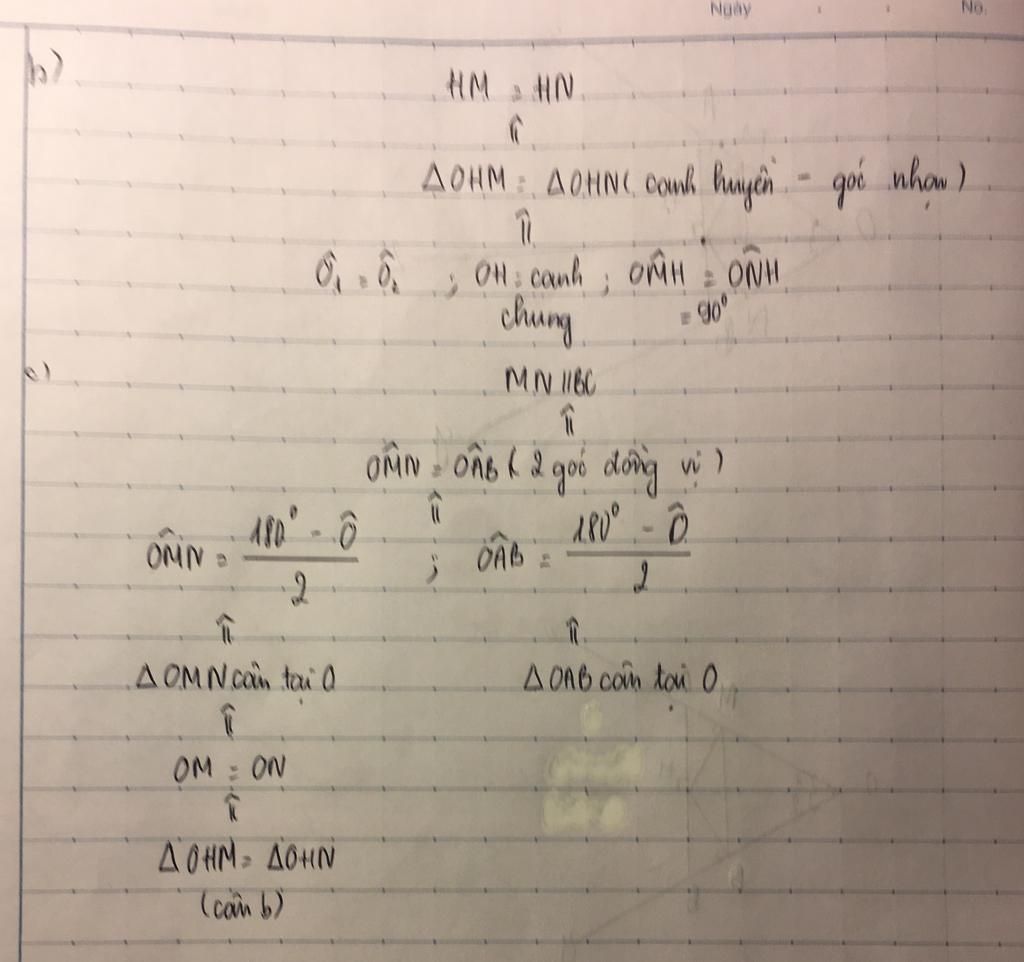 Ngày : : No.
b)
HM = HN
⇑
ΔOHM = ΔOHN ( cạnh huyền - góc nhọn )
⇑
Ô₁ = Ô₂ ; OH : cạnh chung ; OM̂H = ON̂H = 90⁰
c)
MN // BC
⇑
OM̂N = OÂB ( 2 góc đồng vị )
⇑
OM̂N = (180⁰ - Ô)/2 ; OÂB = (180⁰ - Ô)/2
⇑ ⇑
ΔOMN cân tại O ΔOAB cân tại O
⇑
OM = ON
⇑
ΔOHM = ΔOHN
(cân b)